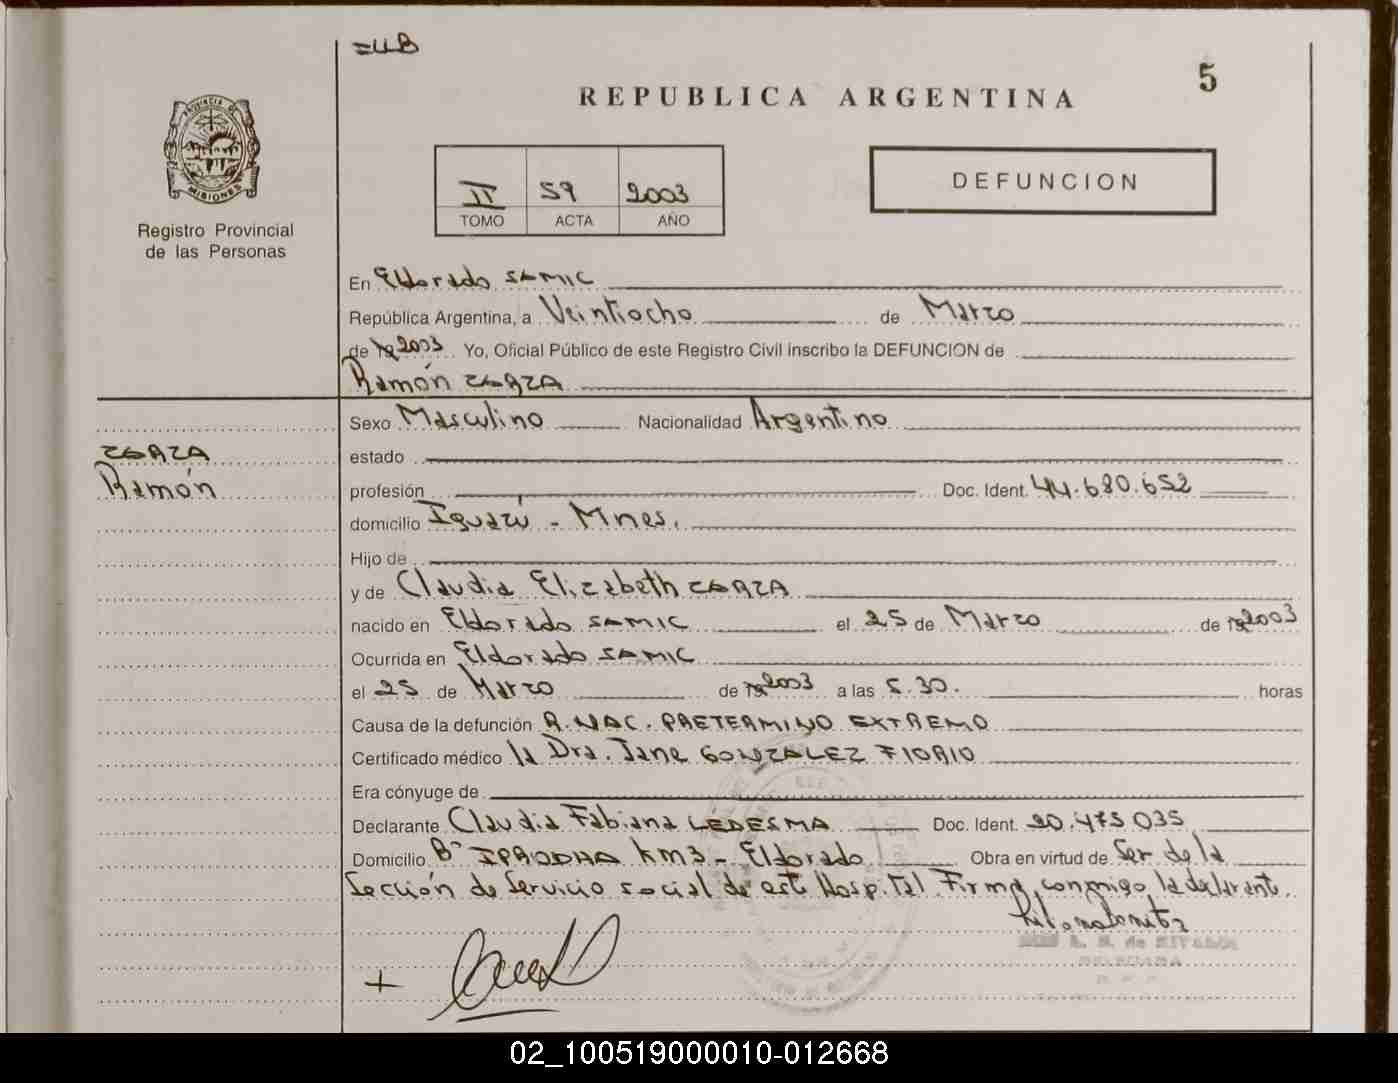 5
REPUBLICA ARGENTINA
PROVINCIA DE
MISIONES
Registro Provincial
de las Personas
II 59 2003
TOMO ACTA AÑO
DEFUNCION
En Eldorado SAMIC
República Argentina, a Veintiocho de Marzo
de 19 2003 Yo, Oficial Público de este Registro Civil inscribo la DEFUNCION de
Ramón
Ramón
Sexo Masculino Nacionalidad Argentino
estado
profesión Doc. Ident. 44.680.652
domicilio Iguazú - Mnes.
Hijo de
y de Claudia Elizabeth
nacido en Eldorado SAMIC el 25 de Marzo de 19 2003
Ocurrida en Eldorado SAMIC
el 25 de Marzo de 19 2003 a las 5.30. horas
Causa de la defunción R. NAC. PRETERMINO EXTREMO
Certificado médico la Dra. Jane GONZALEZ FIORIO
Era cónyuge de
Declarante Claudia Fabiana LEDESMA Doc. Ident. 20.475.035
Domicilio B° IPRODHA Km3 - Eldorado Obra en virtud de Ser de la
Sección de Servicio social de este Hospital Firma conmigo la declarante.
02_100519000010-012668